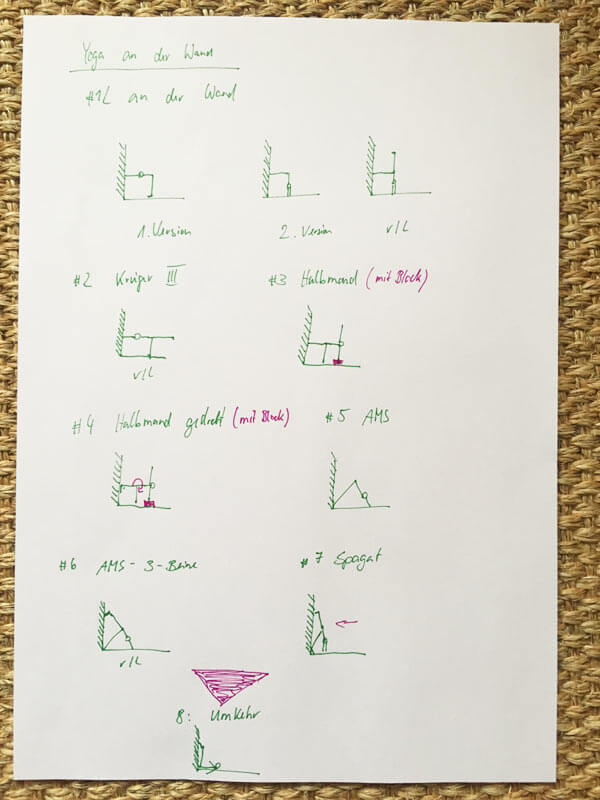 Yoga an der Wand
#1 L an der Wand
1. Version
2. Version
r/L
#2 Krieger III
#3 Halbmond (mit Block)
r/L
#4 Halbmond gedreht (mit Block)
#5 AMS
#6 AMS-3-Beine
#7 Spagat
r/L
8: Umkehr